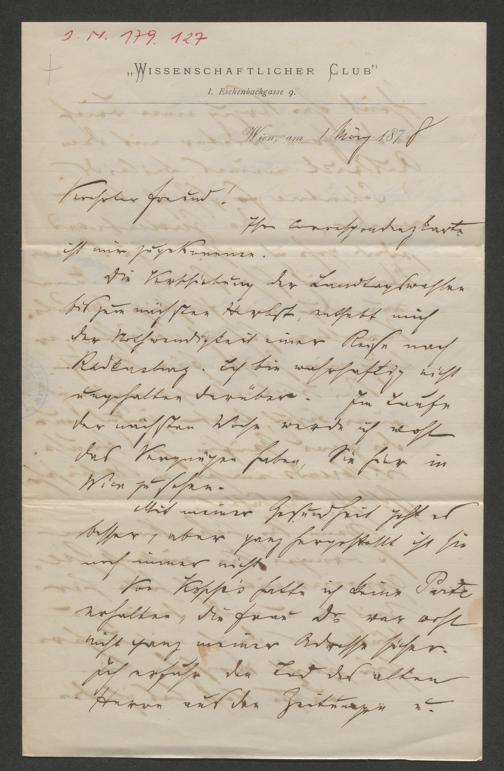 J. N. 179.127
„WISSENSCHAFTLICHER CLUB"
I. Eschenbachgasse 9.
Wien, am 1 März 1878
Verehrter Freund!
Ihre Correspondenzkarte
ist mir zugekommen.
Die Verschiebung der Landtagswahlen
bis zum nächsten Herbst, enthebt mich
der Nothwendigkeit einer Reise nach
Radkersburg. Ich bin wahrhaftig nicht
ungehalten darüber. Im Laufe
der nächsten Woche werde ich wohl
das Vergnügen haben, Sie hier in
Wien zu sehen.
Mit meiner Gesundheit geht es
besser, aber ganz hergestellt ist sie
noch immer nicht.
Von hatte ich keine Parte
erhalten, die Frau Dr war wohl
nicht ganz meiner Adresse sicher.
Ich erfuhr den Tod des alten
Herrn aus den Zeitungen u.